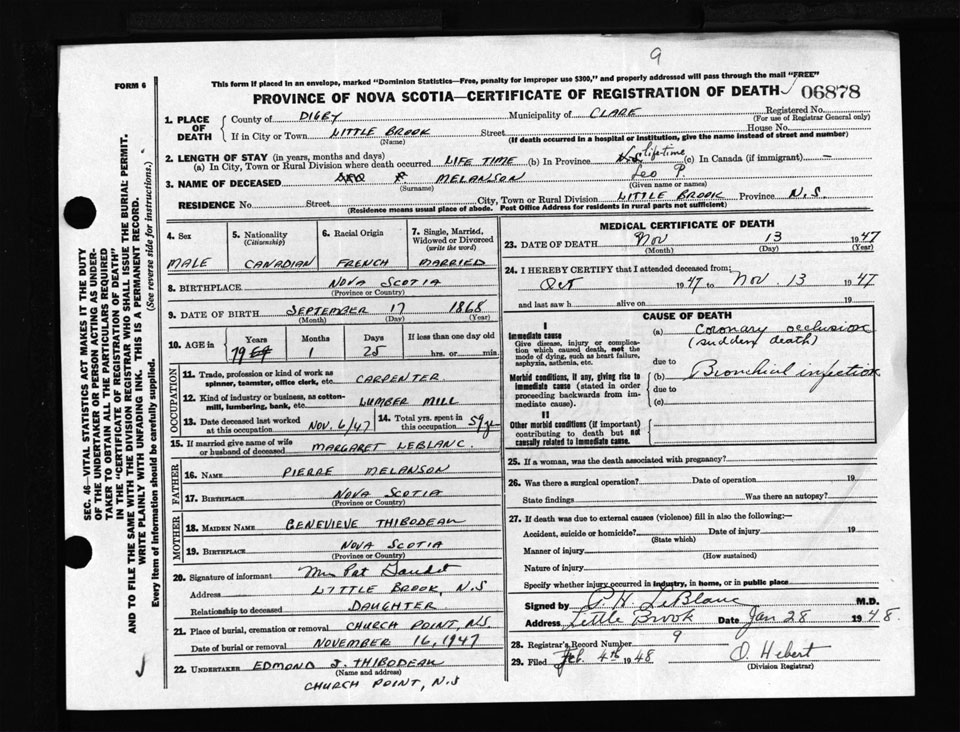 9
This form if placed in an envelope, marked "Dominion Statistics—Free, penalty for improper use $300," and properly addressed will pass through the mail "FREE"
FORM 6
PROVINCE OF NOVA SCOTIA—CERTIFICATE OF REGISTRATION OF DEATH 06878
SEC. 46—VITAL STATISTICS ACT MAKES IT THE DUTY
OF THE UNDERTAKER OR PERSON ACTING AS UNDER-
TAKER TO OBTAIN ALL THE PARTICULARS REQUIRED
IN THE "CERTIFICATE OF REGISTRATION OF DEATH"
AND TO FILE THE SAME WITH THE DIVISION REGISTRAR WHO SHALL ISSUE THE BURIAL PERMIT.
WRITE PLAINLY WITH UNFADING INK. THIS IS A PERMANENT RECORD.
Every item of information should be carefully supplied. (See reverse side for instructions.)
1. PLACE OF DEATH
County of DIGBY Municipality of CLARE Registered No.
(For use of Registrar General only)
If in City or Town LITTLE BROOK Street House No.
(Name) (If death occurred in a hospital or institution, give the name instead of street and number)
2. LENGTH OF STAY (in years, months and days)
(a) In City, Town or Rural Division where death occurred LIFE TIME (b) In Province lifetime (c) In Canada (if immigrant) —
3. NAME OF DECEASED MELANSON Leo P.
(Surname) (Given name or names)
RESIDENCE No. Street City, Town or Rural Division LITTLE BROOK Province N.S.
(Residence means usual place of abode. Post Office Address for residents in rural parts not sufficient)
4. Sex
MALE
5. Nationality
(Citizenship)
CANADIAN
6. Racial Origin
FRENCH
7. Single, Married,
Widowed or Divorced
(write the word)
MARRIED
8. BIRTHPLACE NOVA SCOTIA
(Province or Country)
9. DATE OF BIRTH SEPTEMBER 17 1868
(Month) (Day) (Year)
10. AGE in Years Months Days If less than one day old
79 1 25 hrs. or min.
OCCUPATION
11. Trade, profession or kind of work as
spinner, teamster, office clerk, etc. CARPENTER
12. Kind of industry or business, as cotton-
mill, lumbering, bank, etc. LUMBER MILL
13. Date deceased last worked
at this occupation NOV. 6/47
14. Total yrs. spent in
this occupation 59 y
15. If married give name of wife
or husband of deceased MARGARET LEBLANC
FATHER
16. Name PIERRE MELANSON
17. Birthplace NOVA SCOTIA
(Province or Country)
MOTHER
18. MAIDEN NAME GENEVIEVE THIBODEAU
19. Birthplace NOVA SCOTIA
(Province or Country)
20. Signature of informant Mrs Pat Gaudet
Address LITTLE BROOK, N.S
Relationship to deceased DAUGHTER
21. Place of burial, cremation or removal CHURCH POINT, N.S.
Date of burial or removal NOVEMBER 16, 1947
22. UNDERTAKER EDMOND J. THIBODEAU
(Name and address)
CHURCH POINT, N.S
MEDICAL CERTIFICATE OF DEATH
23. DATE OF DEATH Nov 13 1947
(Month) (Day) (Year)
24. I HEREBY CERTIFY that I attended deceased from:
Oct 1947 to Nov. 13 1947
and last saw h alive on 19
CAUSE OF DEATH
I
Immediate cause
Give disease, injury or complica-
tion which caused death, not the
mode of dying, such as heart failure,
asphyxia, asthenia, etc.
(a) Coronary occlusion
(sudden death)
due to
Morbid conditions, if any, giving rise to
immediate cause (stated in order
proceeding backwards from im-
mediate cause).
(b) Bronchial infection
due to
(c)
II
Other morbid conditions (if important)
contributing to death but not
causally related to immediate cause.
25. If a woman, was the death associated with pregnancy?
26. Was there a surgical operation? Date of operation 19
State findings Was there an autopsy?
27. If death was due to external causes (violence) fill in also the following:—
Accident, suicide or homicide? Date of injury 19
(State which)
Manner of injury
(How sustained)
Nature of injury
Specify whether injury occurred in industry, in home, or in public place
Signed by P. H. LeBlanc M.D.
Address Little Brook Date Jan 28 1948.
28. Registrar's Record Number 9
29. Filed Feb. 4th 1948 O. Hebert
(Division Registrar)